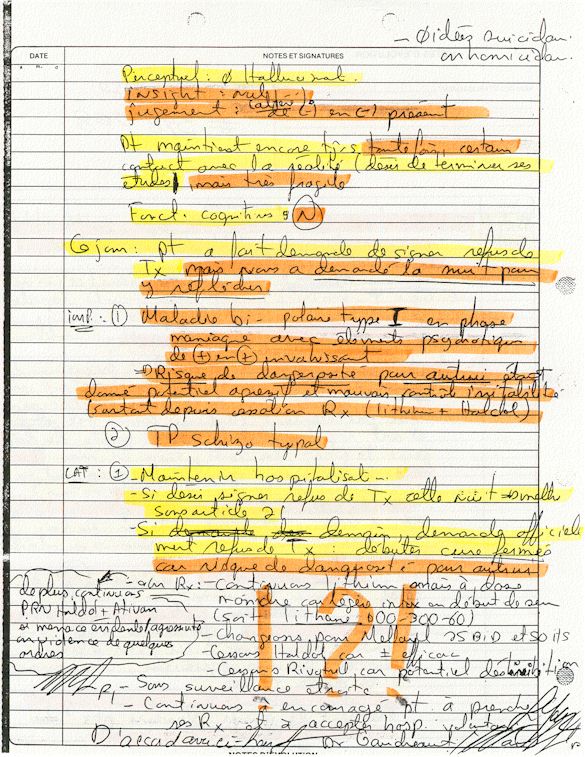 - Ø idées suicidaires
ou homicidaires
DATE
NOTES ET SIGNATURES
Perceptuel : Ø Hallucinat.
insight : nul
jugement : (altéré) de (-) en (-) présent
Pt maintient encore tjrs, toutefois, certain
contact avec la réalité (désir de terminer ses
études) mais très fragile
Fonct. cognitives : N
pt a fait demande de signer refus de
Tx mais nous a demandé la nuit pour
y réfléchir
imp. : ① Maladie bi-polaire type I en phase
maniaque avec éléments psychotiques
de + en + envahissant
Risque de dangerosité pour autrui étant
donné potentiel agressif et mauvais contrôle
(surtout depuis cessation Rx (lithium + Haldol)
② TP schizotypal
CAT : ① - Maintenir hospitalisat
- Si désir signer refus de Tx cette nuit
sous article 21
- Si demain, demande officielle
ment refus de Tx : débuter cure fermée
car risque de dangerosité pour autrui
- Rx : - Continuons lithium mais à dose
moindre car en début de
(soit lithane 600-300-60)
- Changeons pour Mellaril 75 BID et 50 HS
- Cessons Haldol car ± efficace
- Cessons Rivotril car potentiel
de plus, continuons
PRN Haldol + Ativan
si menace
ou violence de quelques
ordres
!?!
- Sous surveillance étroite
- Continuons à encourager pt à prendre
ses Rx et à accepter hosp. volontaire
D'accord avec ci-haut Dr Gaudreault
NOTES D'ÉVOLUTION